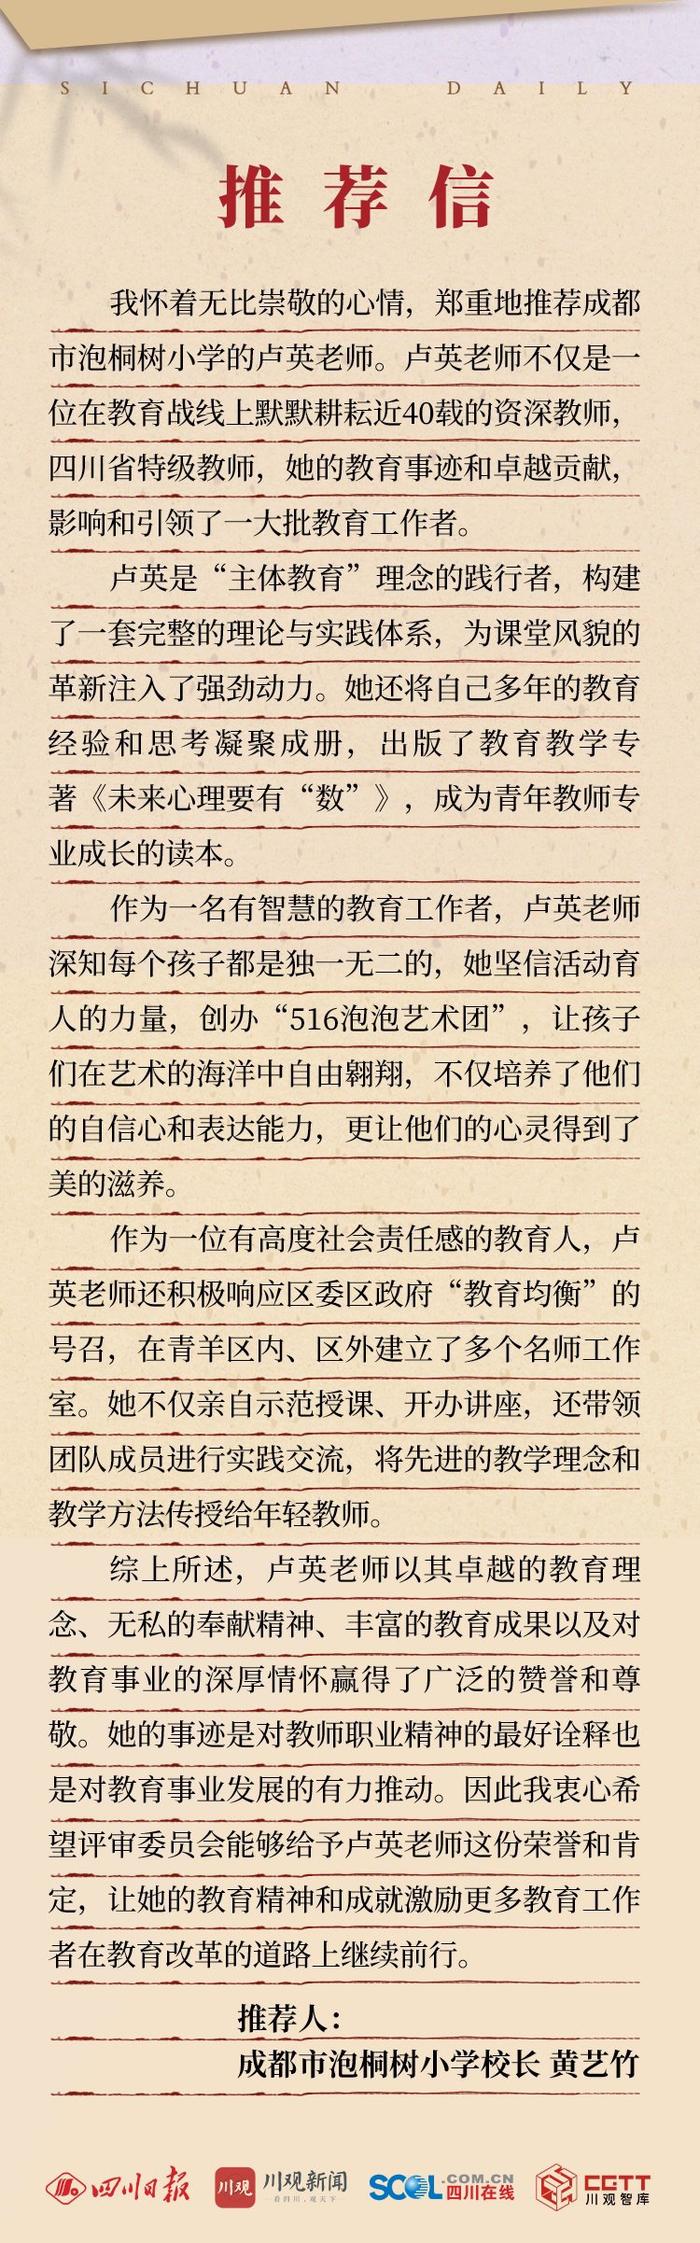 SICHUAN DAILY
推荐信
我怀着无比崇敬的心情，郑重地推荐成都
市泡桐树小学的卢英老师。卢英老师不仅是一
位在教育战线上默默耕耘近40载的资深教师，
四川省特级教师，她的教育事迹和卓越贡献，
影响和引领了一大批教育工作者。
卢英是“主体教育”理念的践行者，构建
了一套完整的理论与实践体系，为课堂风貌的
革新注入了强劲动力。她还将自己多年的教育
经验和思考凝聚成册，出版了教育教学专
著《未来心理要有“数”》，成为青年教师专
业成长的读本。
作为一名有智慧的教育工作者，卢英老师
深知每个孩子都是独一无二的，她坚信活动育
人的力量，创办“516泡泡艺术团”，让孩子
们在艺术的海洋中自由翱翔，不仅培养了他们
的自信心和表达能力，更让他们的心灵得到了
美的滋养。
作为一位有高度社会责任感的教育人，卢
英老师还积极响应区委区政府“教育均衡”的
号召，在青羊区内、区外建立了多个名师工作
室。她不仅亲自示范授课、开办讲座，还带领
团队成员进行实践交流，将先进的教学理念和
教学方法传授给年轻教师。
综上所述，卢英老师以其卓越的教育理
念、无私的奉献精神、丰富的教育成果以及对
教育事业的深厚情怀赢得了广泛的赞誉和尊
敬。她的事迹是对教师职业精神的最好诠释也
是对教育事业发展的有力推动。因此我衷心希
望评审委员会能够给予卢英老师这份荣誉和肯
定，让她的教育精神和成就激励更多教育工作
者在教育改革的道路上继续前行。
推荐人：
成都市泡桐树小学校长 黄艺竹
四川日报
川观 川观新闻
看四川，观天下
SCOL .COM.CN 四川在线
CGTT 川观智库